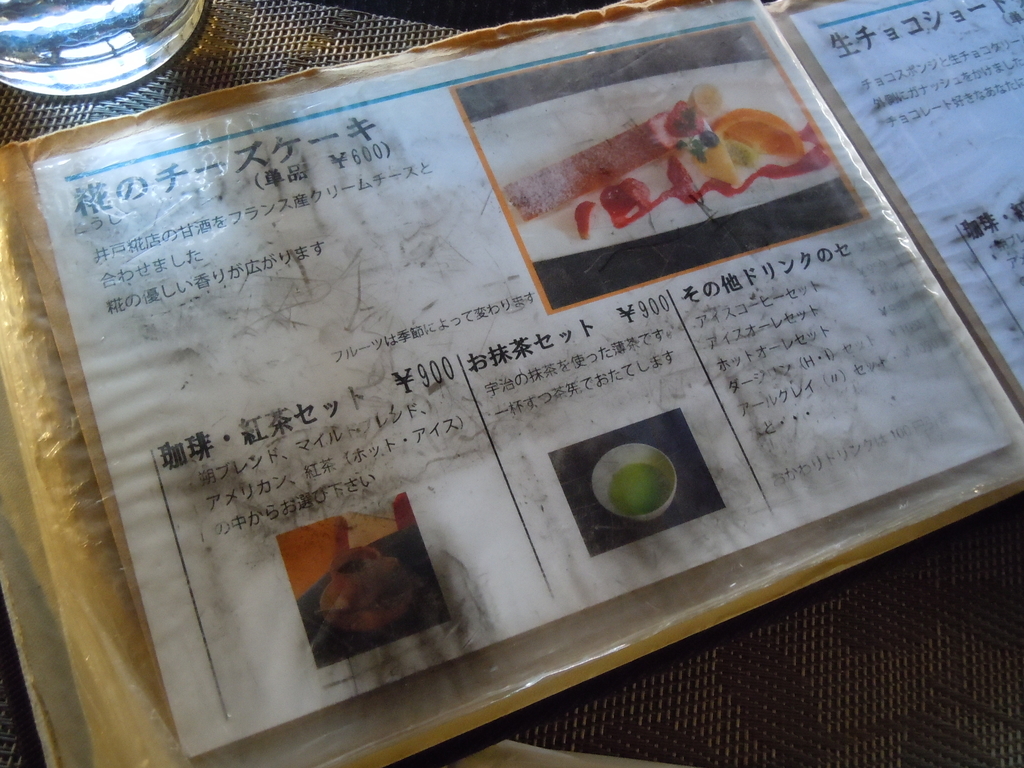 糀のチーズケーキ
こうじ
(単品 ￥600)
井戸糀店の甘酒をフランス産クリームチーズと
合わせました
糀の優しい香りが広がります
フルーツは季節によって変わります
珈琲・紅茶セット ￥900
ブレンド、マイルドブレンド、
アメリカン、紅茶（ホット・アイス）
の中からお選び下さい
お抹茶セット ￥900
宇治の抹茶を使った薄茶です。
一杯ずつ茶筅でおたてします
その他ドリンクのセ
アイスコーヒーセット
アイスオーレセット
ホットオーレセット
ダージリン（H・I）セット
アールグレイ（〃）セット
と・・・
おかわりドリンクは100円
生チョコショート
チョコスポンジと生チョコクリー
外側にガナッシュをかけました
チョコレート好きなあなたに
珈琲・